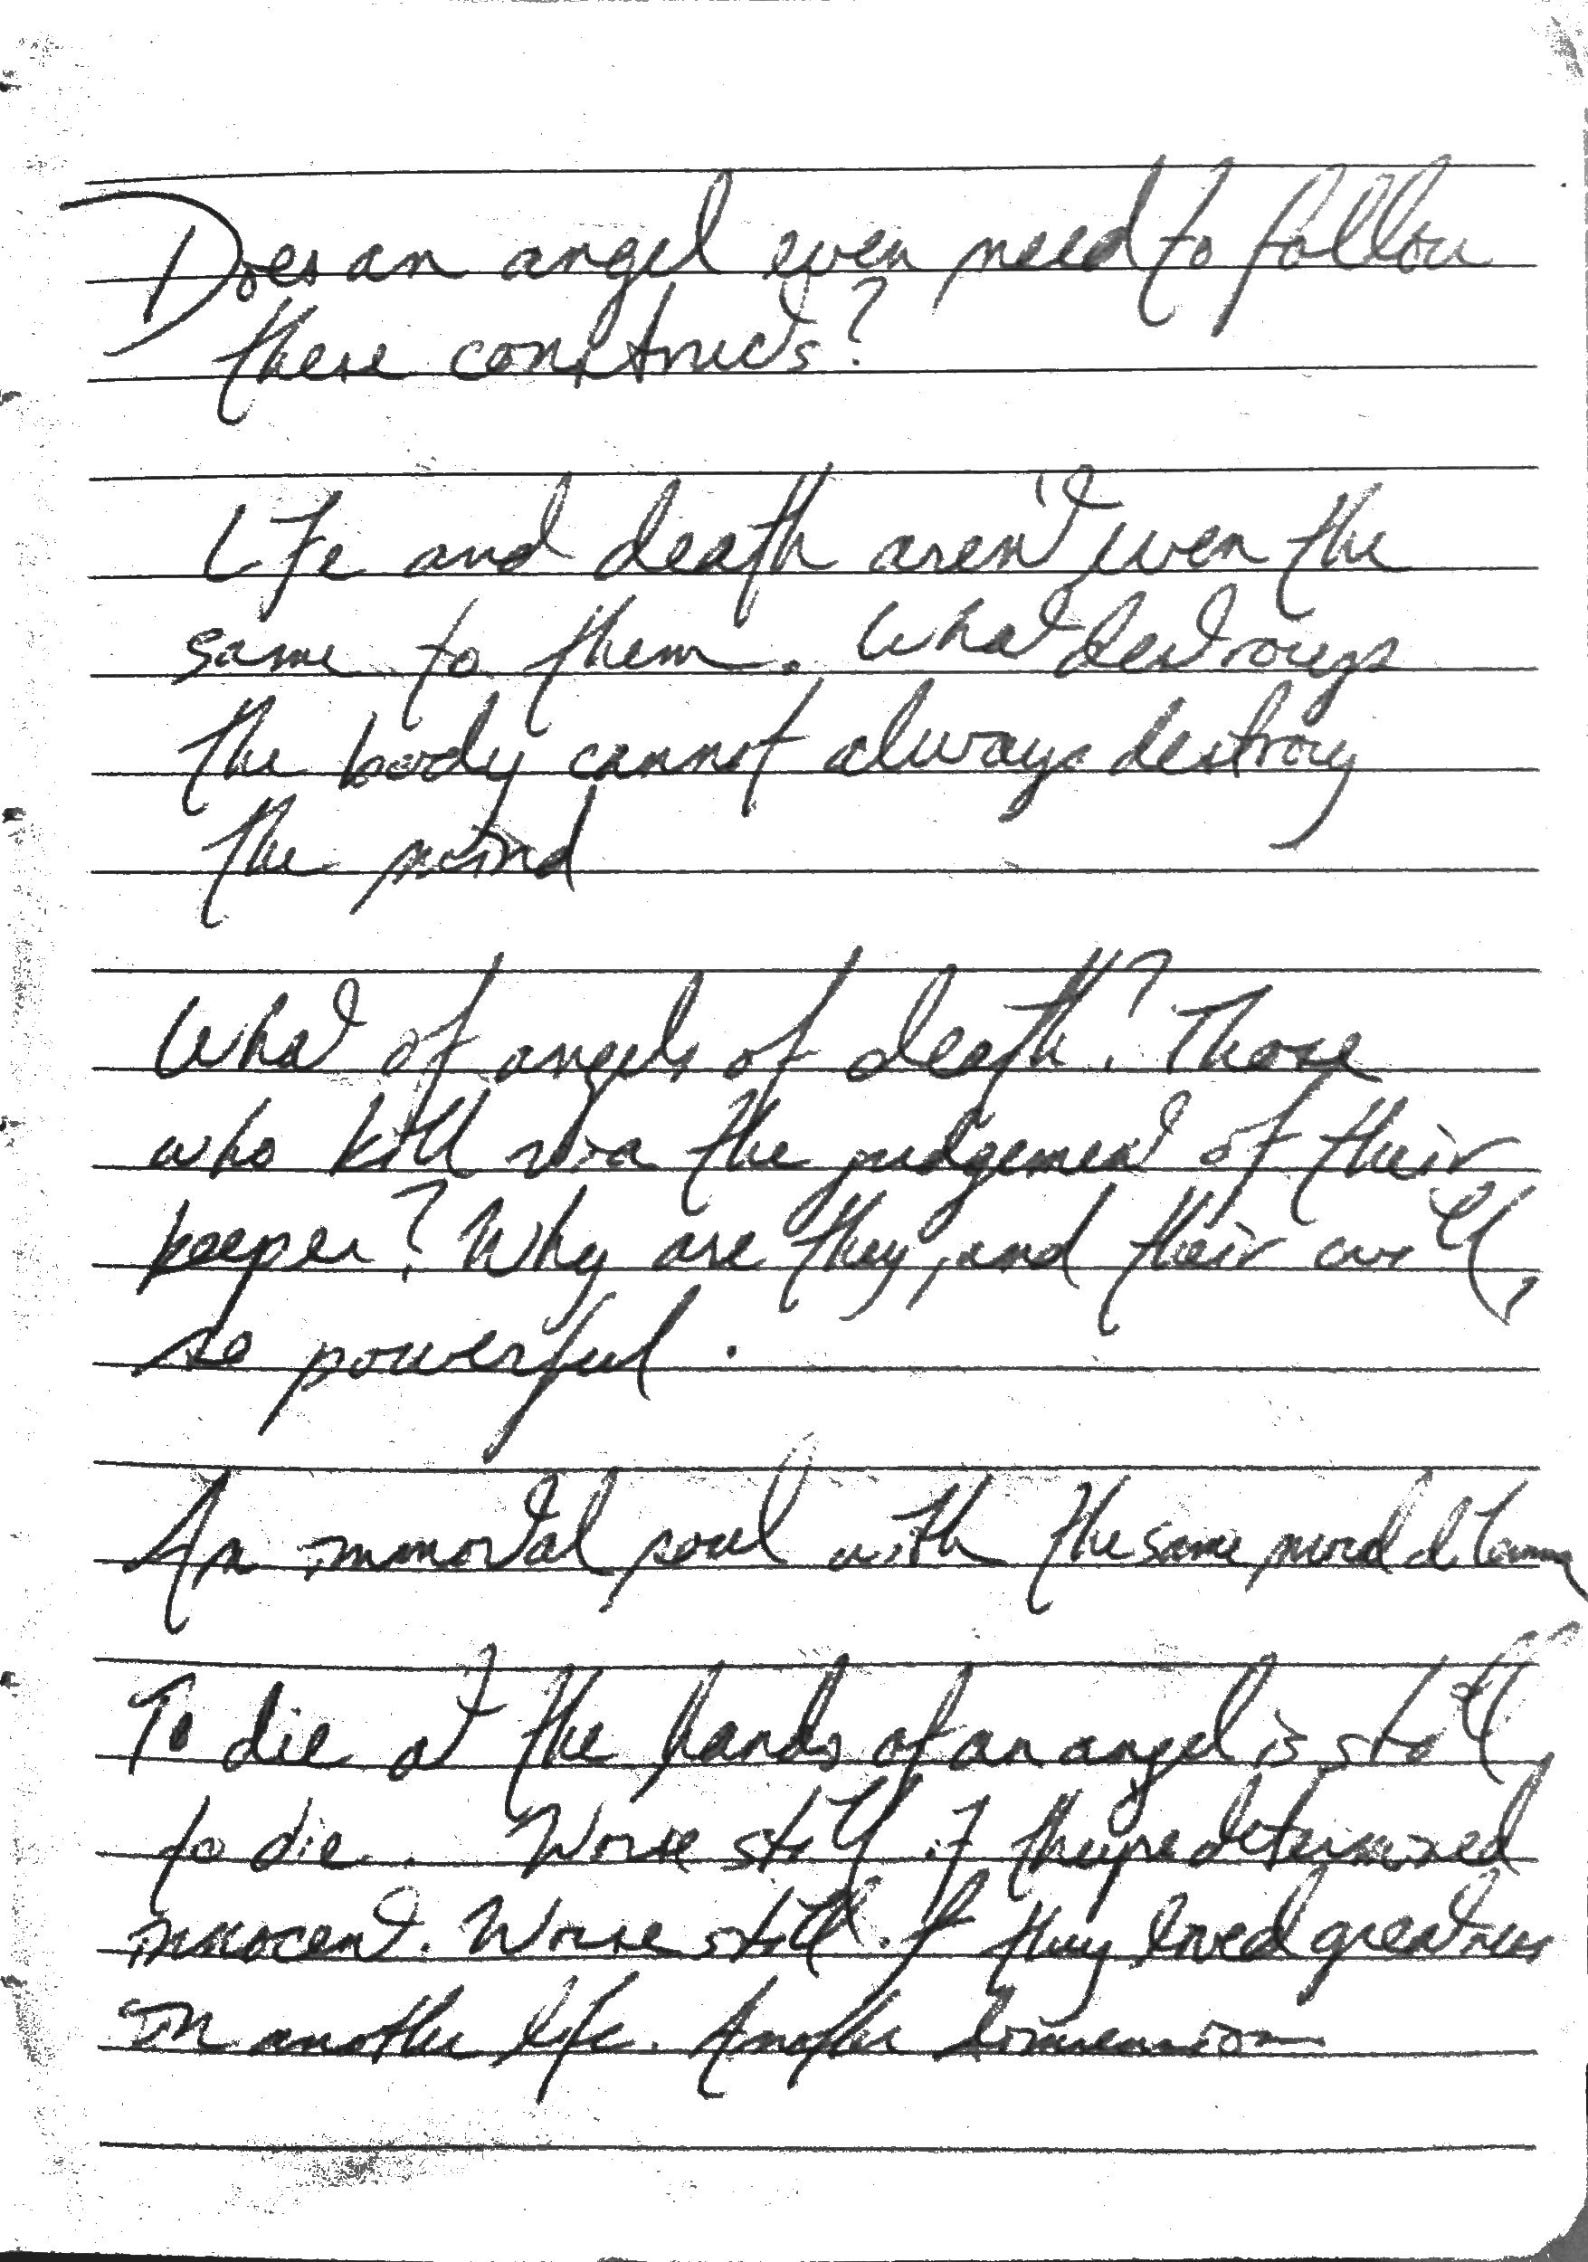 Does an angel even need to follow
these constructs?
Life and death aren't even the
same to them. What destroys
the body cannot always destroy
the mind
What of angels of death? Those
who kill via the judgement of their
keeper? Why are they, and their will,
so powerful.
An immortal soul with the same moral dilemma
To die at the hands of an angel is still
to die. Worse still if they're determined
innocent. Worse still if they loved greatness
In another life. Another dimension